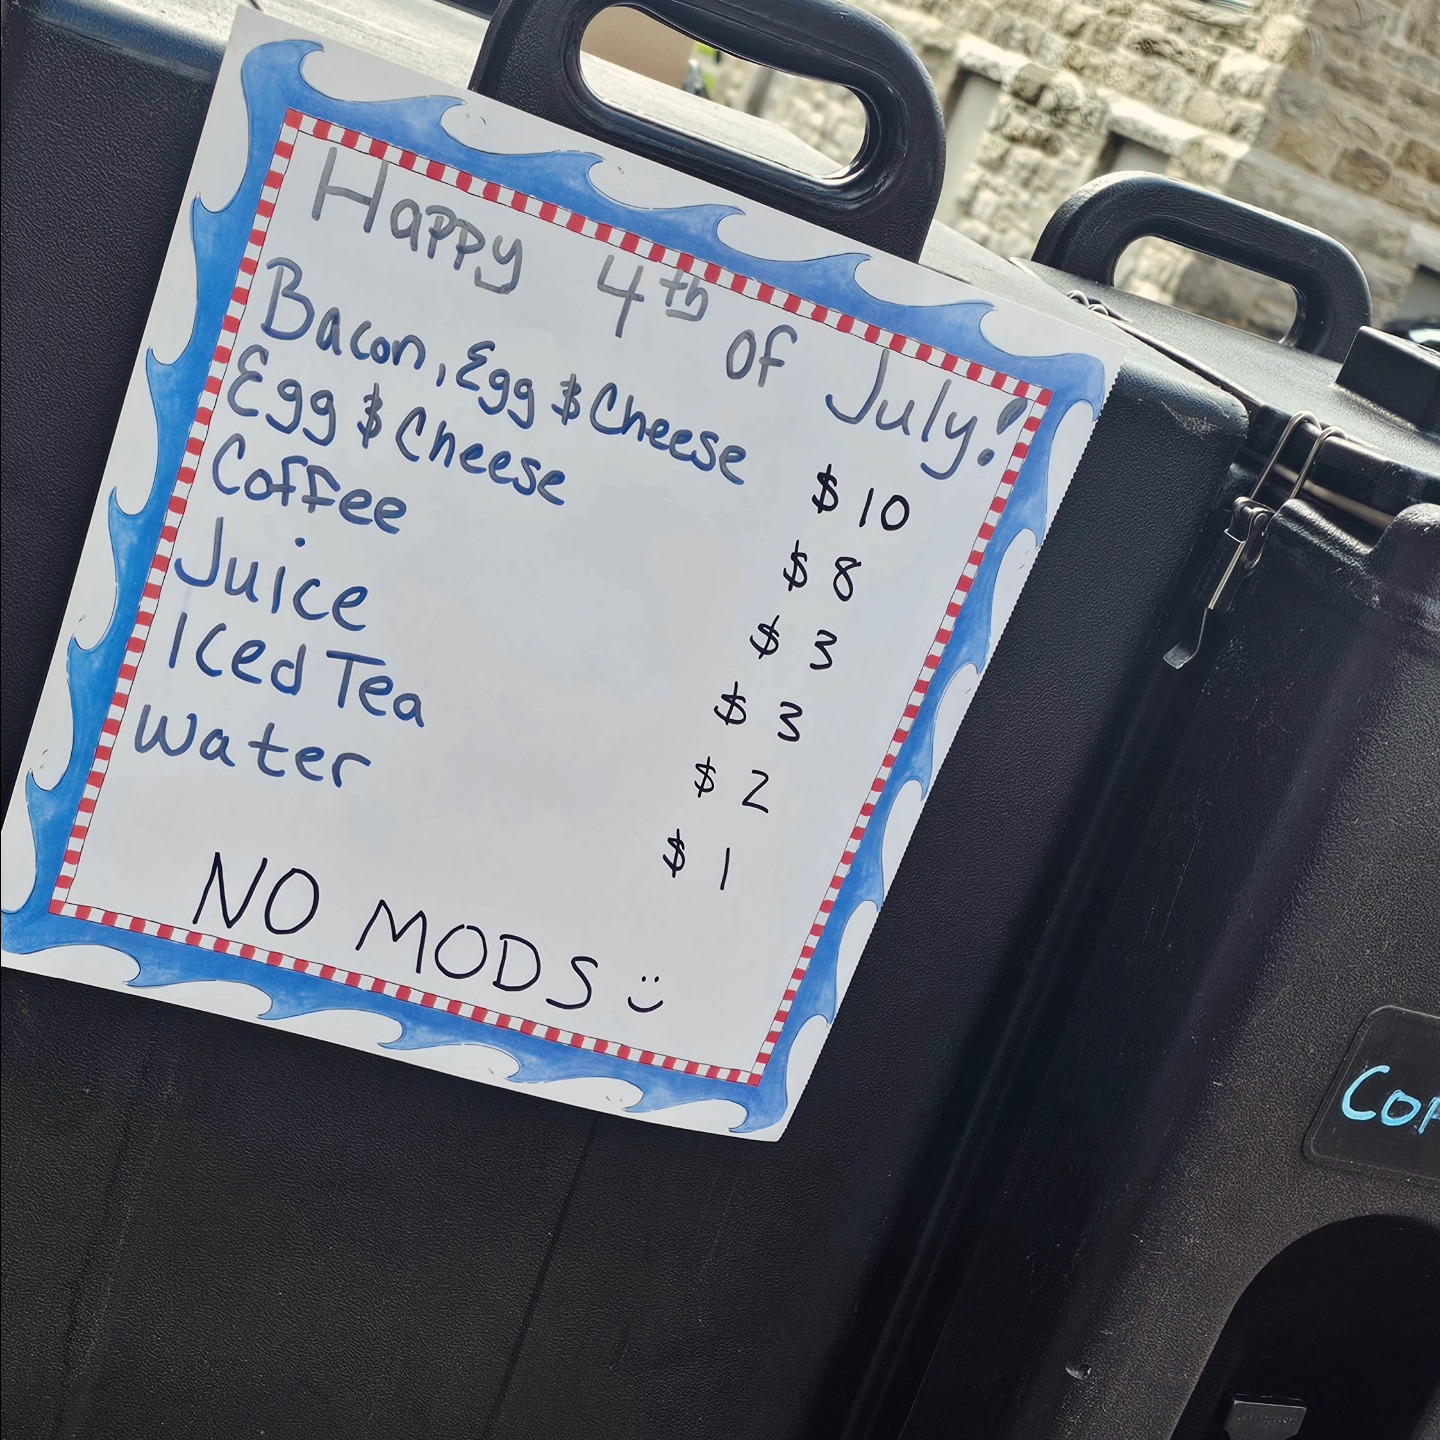 Happy 4th of July!
Bacon, Egg & Cheese $10
Egg & Cheese $8
Coffee $3
Juice $3
Iced Tea $2
Water $1
NO MODS :)